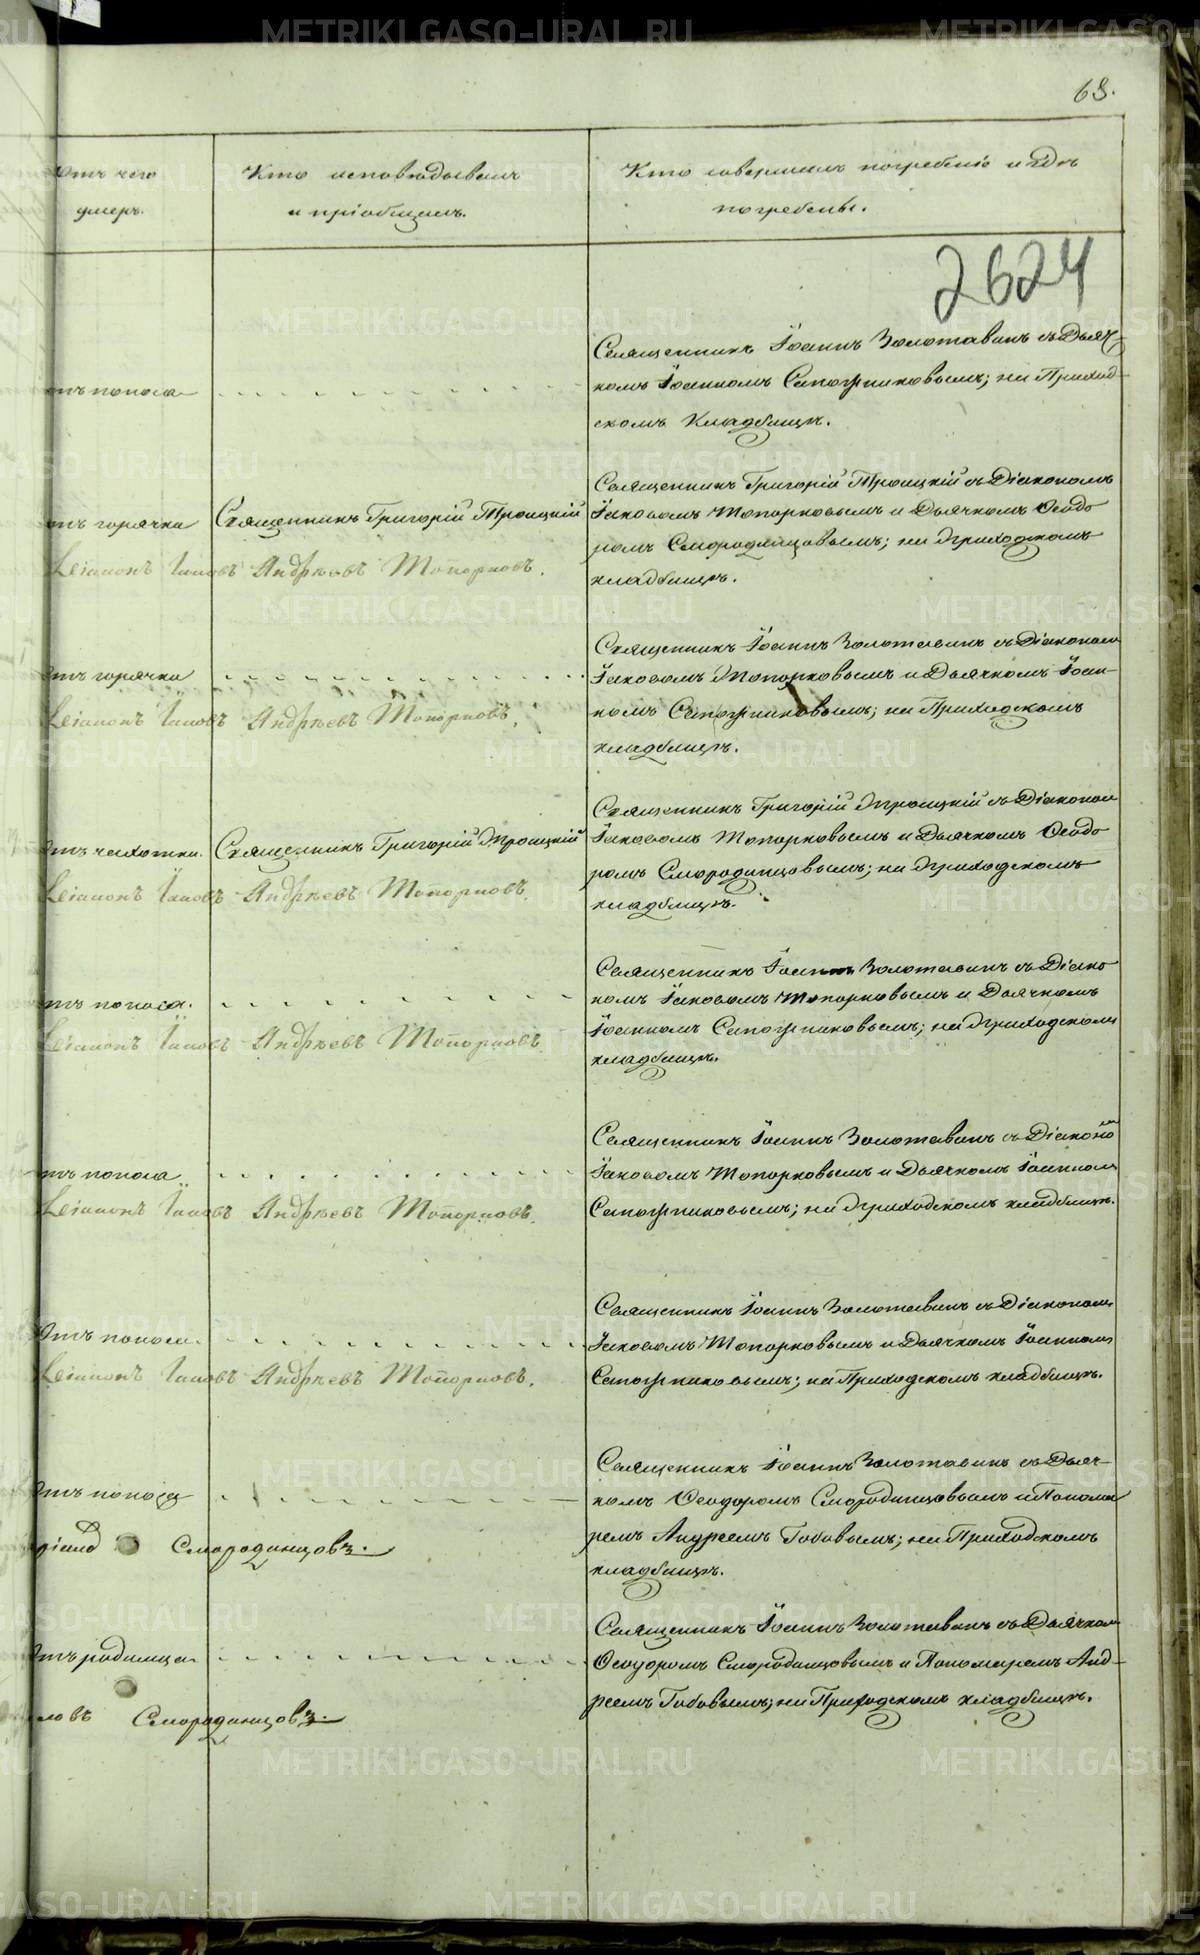 68.
Отъ чего
умеръ.
Кто исповѣдывалъ
и пріобщалъ.
Кто совершалъ погребеніе и гдѣ
погребены.
2624
Священникъ Іоаннъ Золотавинъ съ Дьяч-
отъ поноса
комъ Іоанномъ Сапожниковымъ; на Приход-
скомъ Кладбищѣ.
Священникъ Григорій Троицкій съ Діакономъ
отъ горячки Священникъ Григорій Троицкій
Іаковомъ Топорковымъ и Дьячкомъ Ѳеодо
ромъ Смородинцовымъ; на приходскомъ
Діаконъ Іаковъ Андреевъ Топорковъ.
кладбищѣ.
Священникъ Іоаннъ Золотавинъ съ Діакономъ
Отъ горячки
Іаковомъ Топорковымъ и Дьячкомъ Іоан-
Діаконъ Іаковъ Андреевъ Топорковъ.
номъ Сапожниковымъ; на Приходскомъ
кладбищѣ.
Священникъ Григорій Троицкій съ Діакономъ
Отъ чахотки. Священникъ Григорій Троицкій
Іаковомъ Топорковымъ и Дьячкомъ Ѳеодо
ромъ Смородинцовымъ; на приходскомъ
Діаконъ Іаковъ Андреевъ Топорковъ.
кладбищѣ.
Священникъ Іоаннъ Золотавинъ съ Діако
отъ поноса.
номъ Іаковомъ Топорковымъ и Дьячкомъ
Іоанномъ Сапожниковымъ; на приходскомъ
Діаконъ Іаковъ Андреевъ Топорковъ.
кладбищѣ.
Священникъ Іоаннъ Золотавинъ съ Діаконо
отъ поноса
Іаковомъ Топорковымъ и Дьячкомъ Іоанномъ
Діаконъ Іаковъ Андреевъ Топорковъ.
Сапожниковымъ; на приходскомъ кладбищѣ.
Священникъ Іоаннъ Золотавинъ съ Діакономъ
Отъ поноса.
Іаковомъ Топорковымъ и Дьячкомъ Іоанномъ
Діаконъ Іаковъ Андреевъ Топорковъ.
Сапожниковымъ; на Приходскомъ кладбищѣ.
Священникъ Іоаннъ Золотавинъ съ Дьяч-
Отъ поноса
комъ Ѳеодоромъ Смородинцовымъ и Понома
ремъ Андреемъ Бабовымъ; на Приходскомъ
Смородинцовъ.
кладбищѣ.
Священникъ Іоаннъ Золотавинъ съ Дьячкомъ
Отъ родимца
Ѳеодоромъ Смородинцовымъ и Пономаремъ Анд-
реемъ Бабовымъ; на Приходскомъ кладбищѣ.
ловъ Смородинцовъ.
METRIKI.GASO-URAL.RU